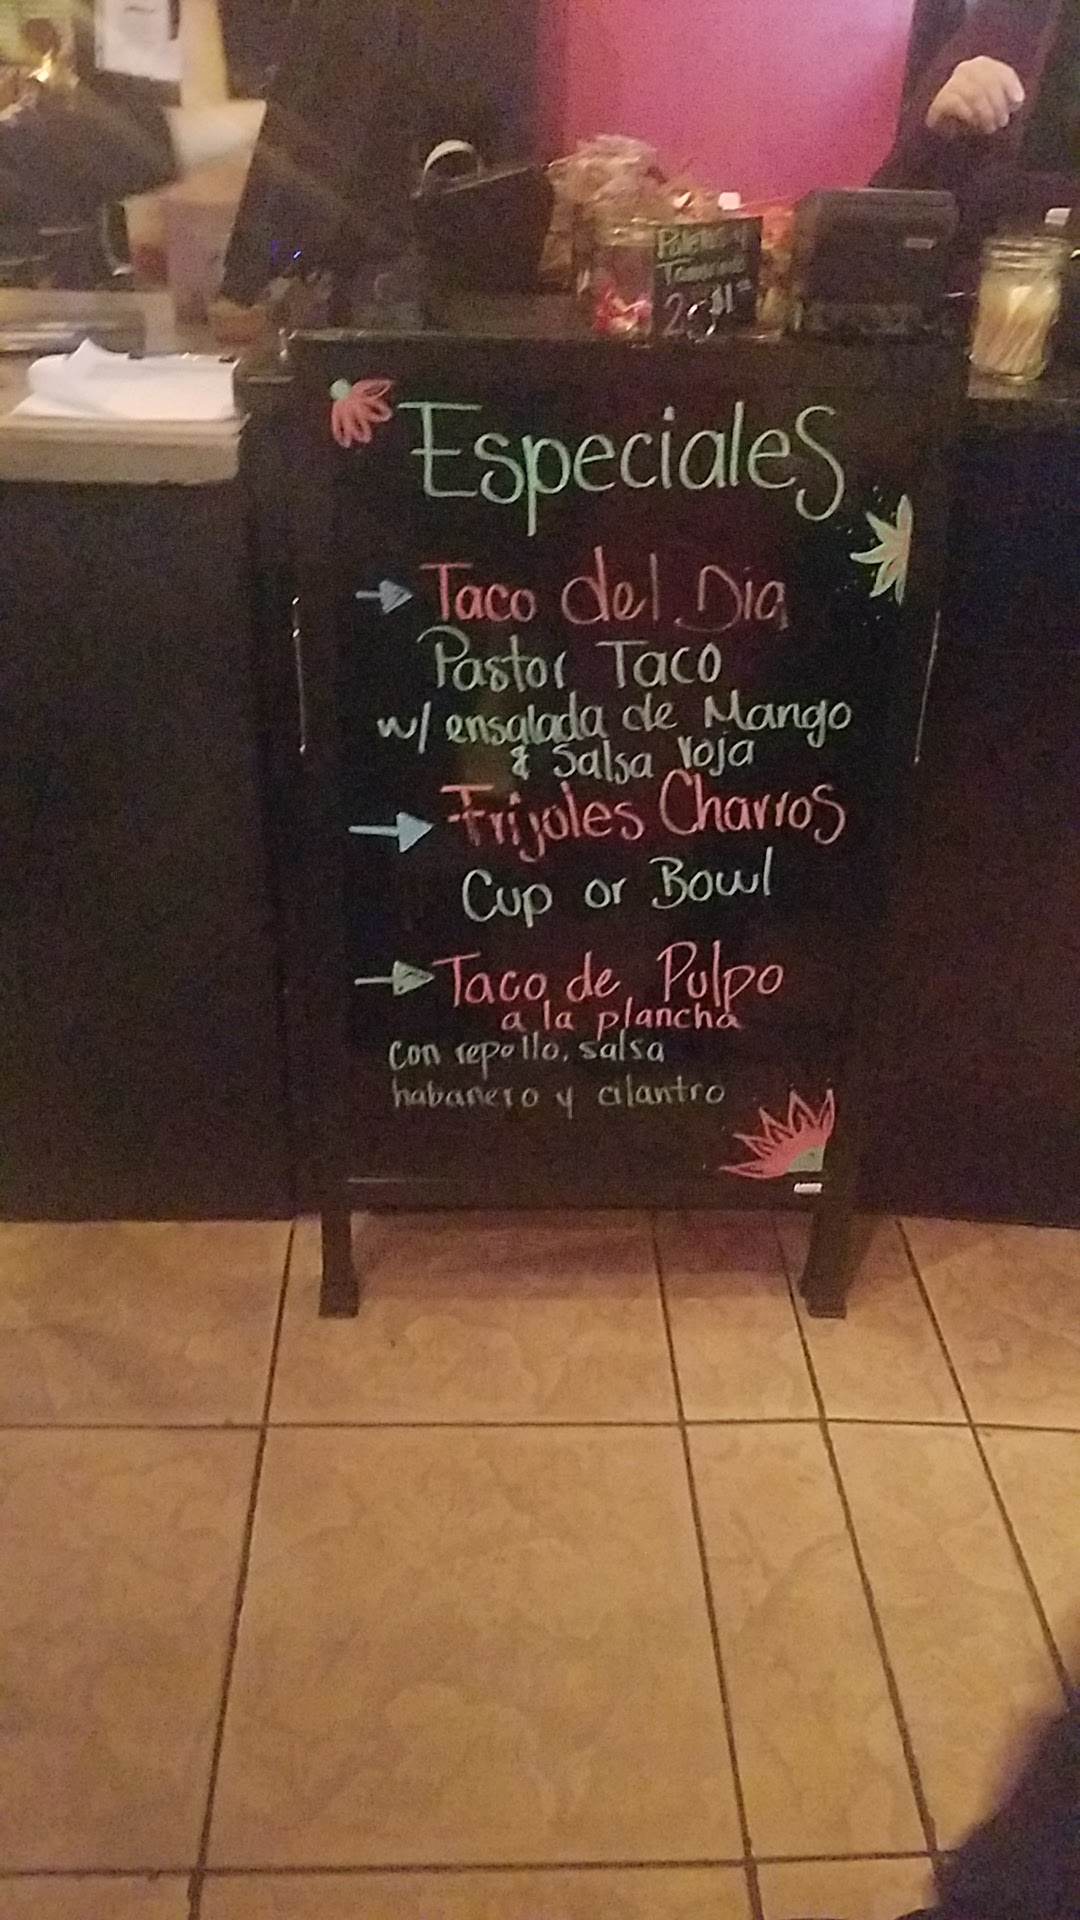 Paletas y
Tamarindo
2 $1
Especiales
Taco del Dia
Pastor Taco
w/ ensalada de Mango
& Salsa roja
Frijoles Charros
Cup or Bowl
Taco de Pulpo
a la plancha
con repollo, salsa
habanero y cilantro